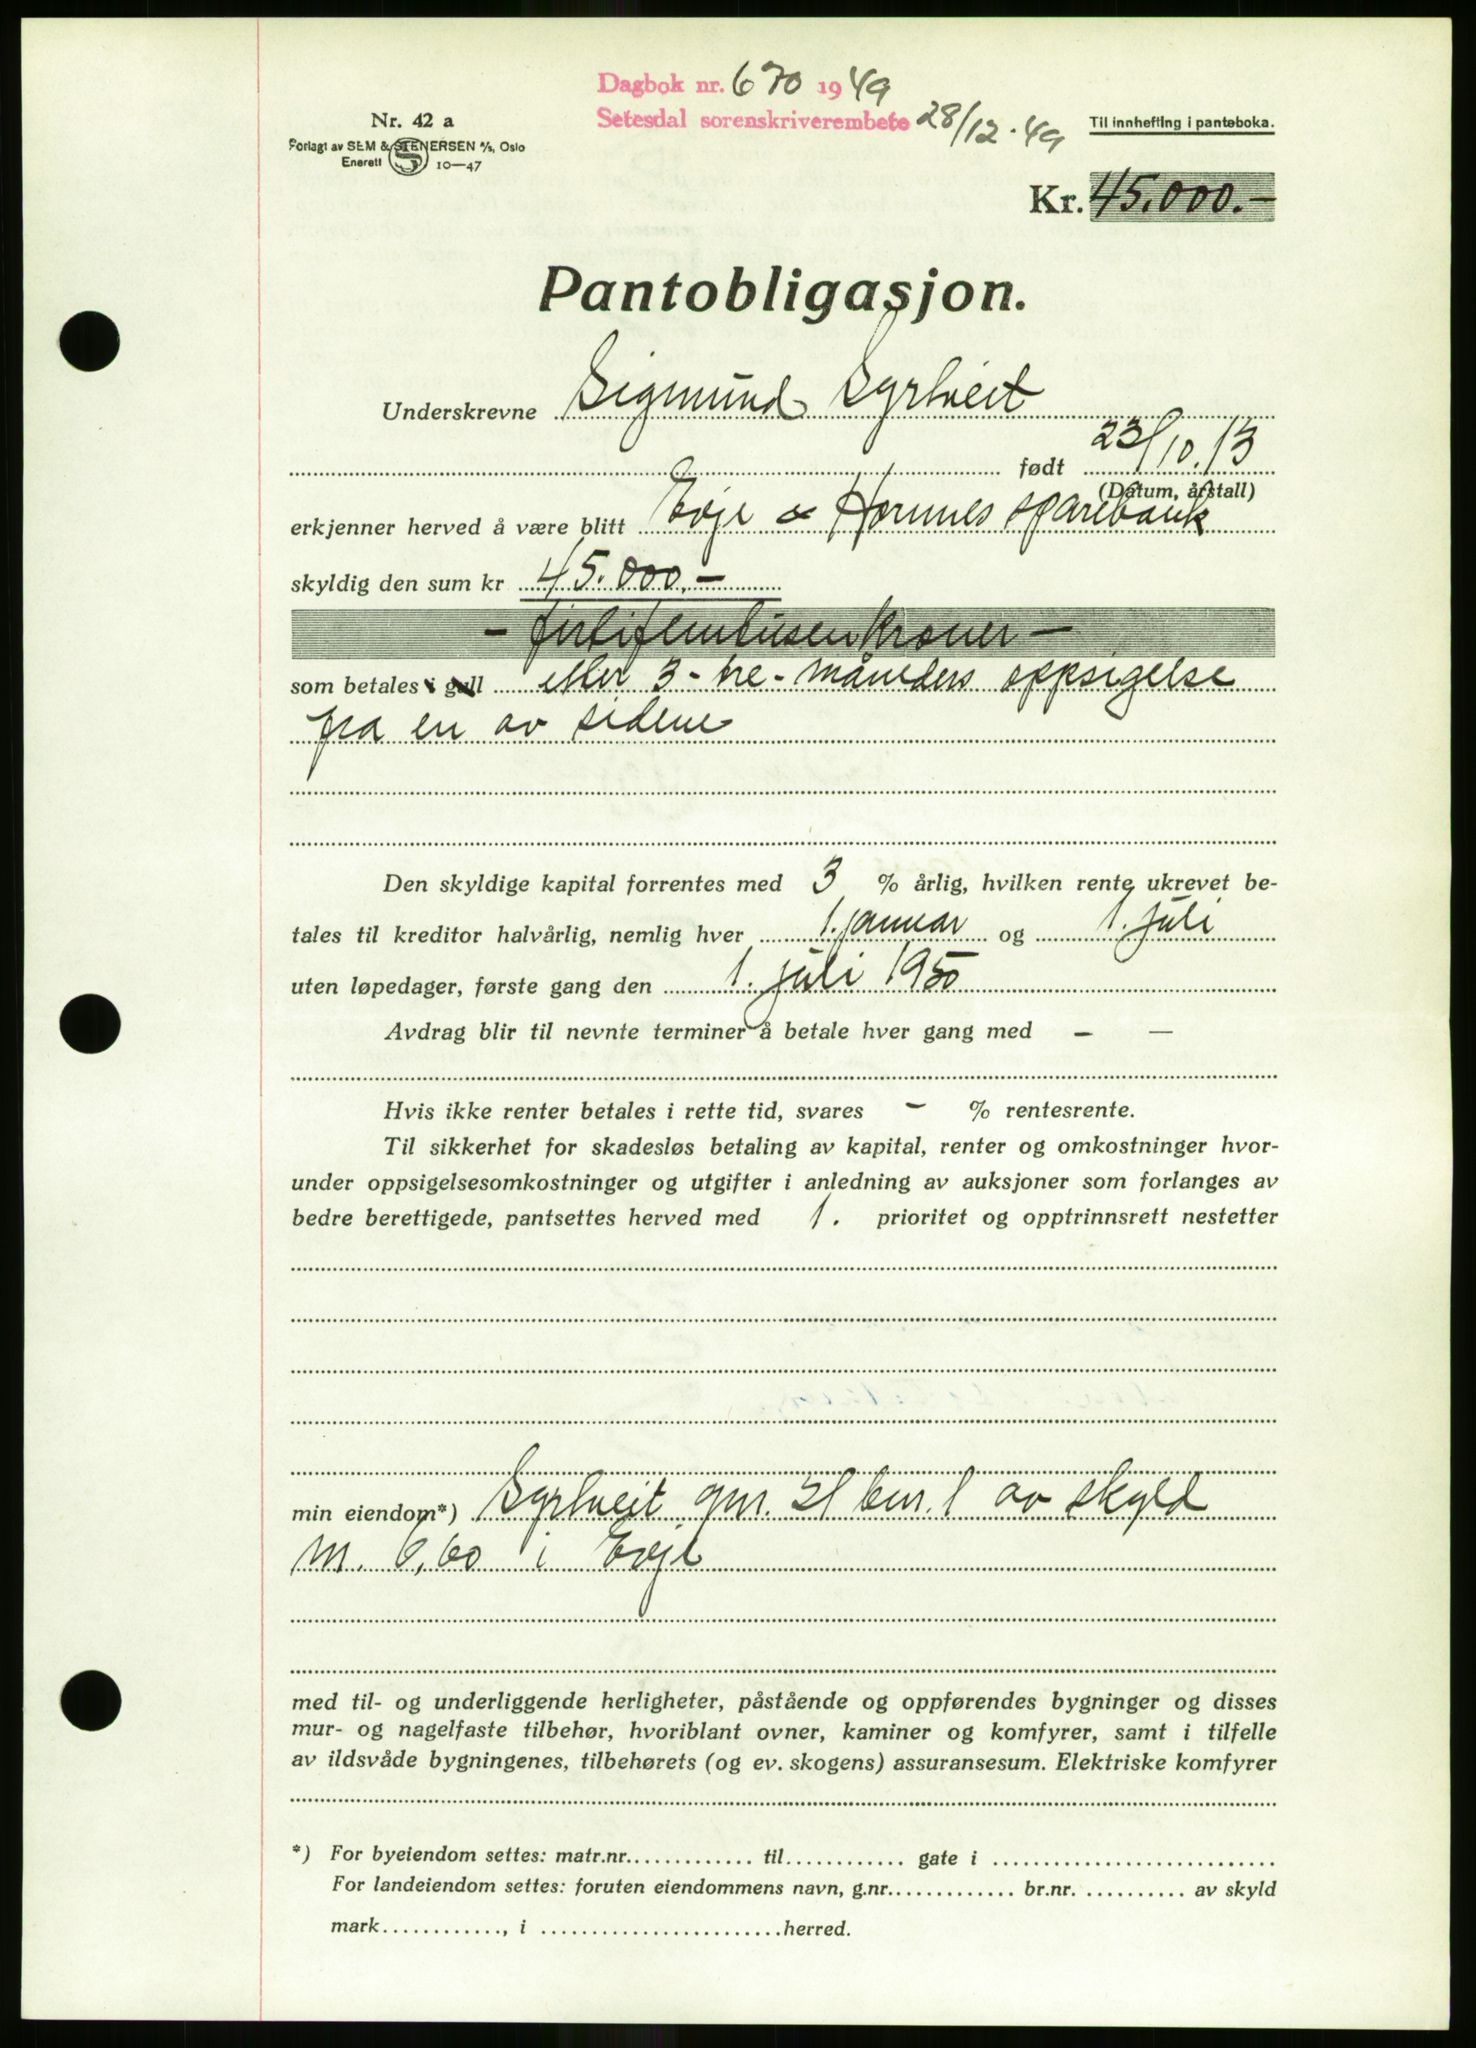 Dagbok nr. 670 1949
Setesdal sorenskriverembete 28/12-49
Nr. 42 a
Forlagt av SEM & STENERSEN A/S, Oslo
Enerett S 10—47
Til innhefting i panteboka.
Kr. 45.000.-
Pantobligasjon.
Underskrevne Sigmund Syrtveit
født 23/10.13
(Datum, årstall)
erkjenner herved å være blitt Evje & Hornnes sparebank
skyldig den sum kr 45.000.-
- førtifemtusenkroner -
som betales i gull etter 3-tre-måneders oppsigelse
fra en av sidene
Den skyldige kapital forrentes med 3 % årlig, hvilken rente ukrevet be-
tales til kreditor halvårlig, nemlig hver 1. januar og 1. juli
uten løpedager, første gang den 1. juli 1950
Avdrag blir til nevnte terminer å betale hver gang med - —
Hvis ikke renter betales i rette tid, svares - % rentesrente.
Til sikkerhet for skadesløs betaling av kapital, renter og omkostninger hvor-
under oppsigelsesomkostninger og utgifter i anledning av auksjoner som forlanges av
bedre berettigede, pantsettes herved med 1. prioritet og opptrinnsrett nestetter
min eiendom*) Syrtveit gnr. 21 bnr. 1 av skyld
m. 6,60 i Evje
med til- og underliggende herligheter, påstående og oppførendes bygninger og disses
mur- og nagelfaste tilbehør, hvoriblant ovner, kaminer og komfyrer, samt i tilfelle
av ildsvåde bygningenes, tilbehørets (og ev. skogens) assuransesum. Elektriske komfyrer
*) For byeiendom settes: matr.nr.............. til............ gate i ............................
For landeiendom settes: foruten eiendommens navn, g.nr............. br.nr. .......... av skyld
mark............, i ........................herred.